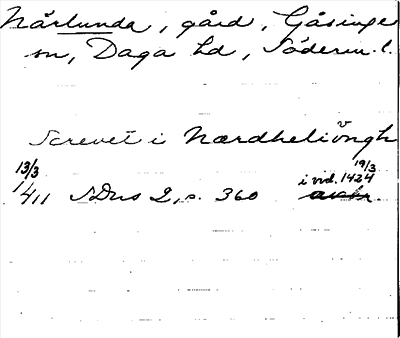 Närlunda, gård, Gåsinge
sn, Daga hd, Söderm. l.
Screvet i Nærdheliöngh
13/3 19/3
1411 SDns 2, s. 360 i vid. 1424
avskr.